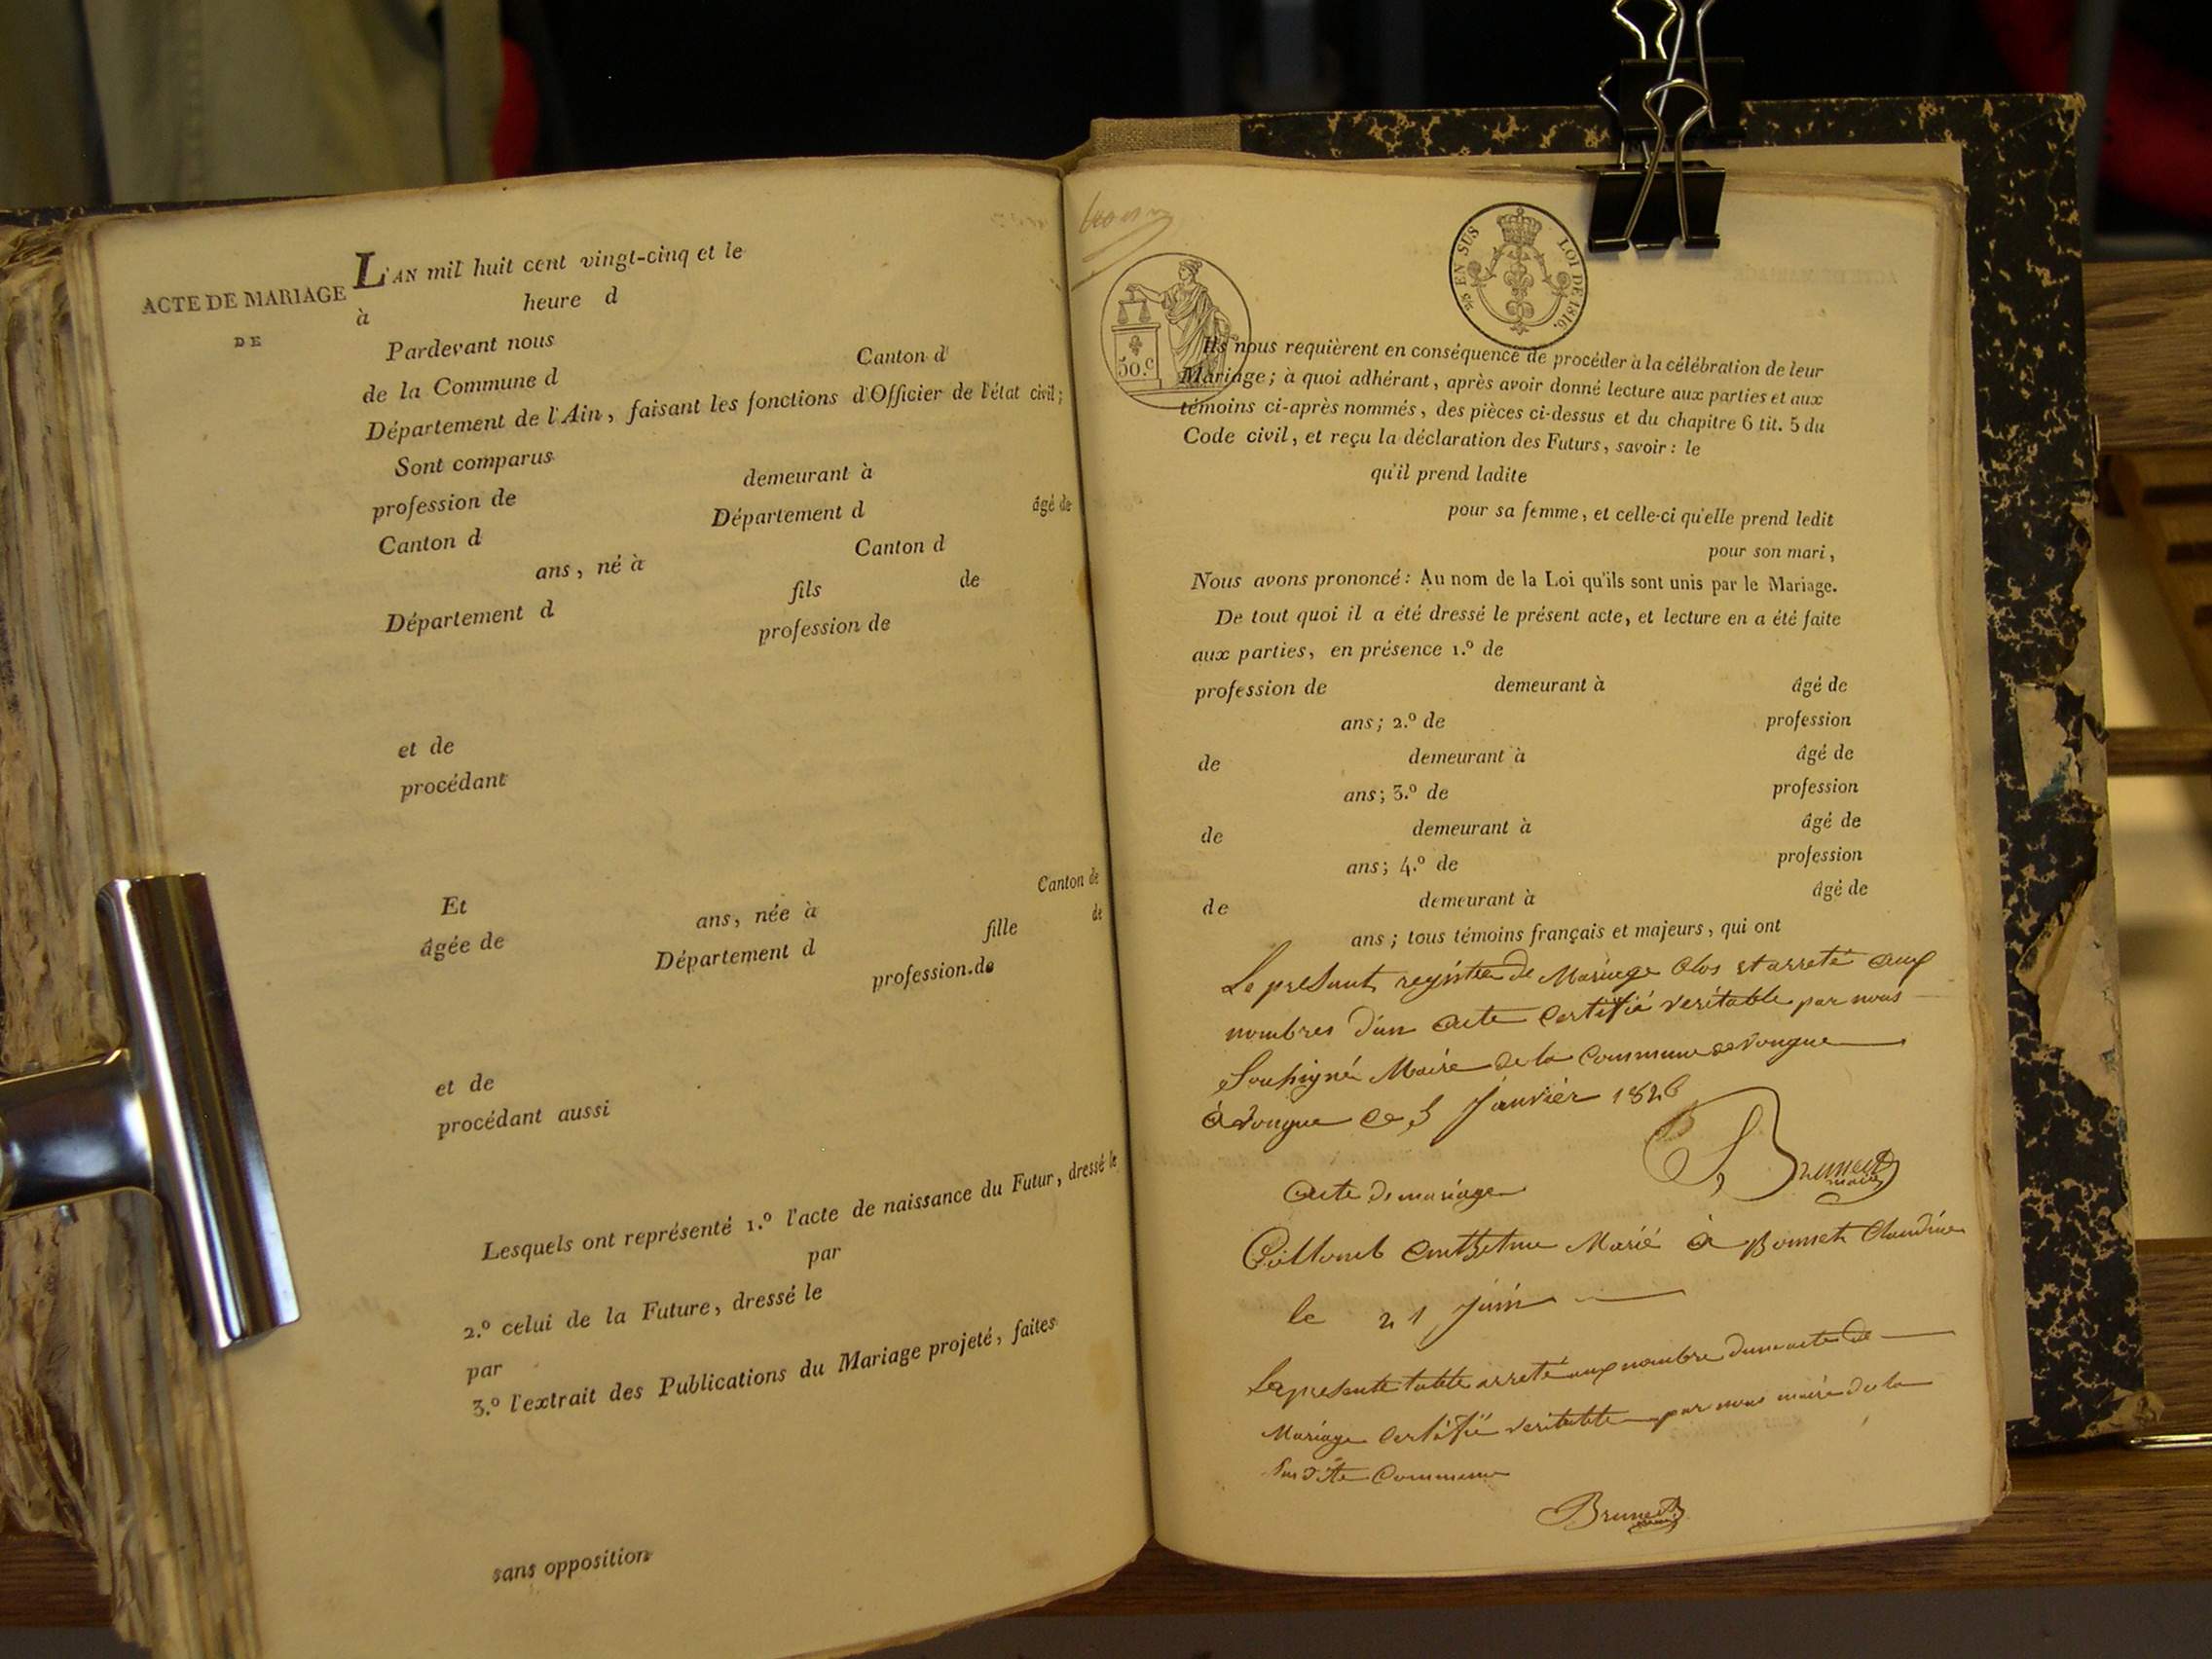 ACTE DE MARIAGE
DE
L'AN mil huit cent vingt-cinq et le
à heure d
Pardevant nous
de la Commune d Canton d
Département de l'Ain, faisant les fonctions d'Officier de l'état civil;
Sont comparus
profession de demeurant à
Canton d Département d âgé de
ans, né à Canton d
Département d fils de
profession de
et de
procédant
Et
âgée de ans, née à Canton de
Département d fille de
profession.de
et de
procédant aussi
Lesquels ont représenté 1.º l'acte de naissance du Futur, dressé le
par
2.º celui de la Future, dressé le
par
3.º l'extrait des Publications du Mariage projeté, faites
sans opposition
50.c
EN SUS LOI DE 1816.
Ils nous requièrent en conséquence de procéder à la célébration de leur
Mariage; à quoi adhérant, après avoir donné lecture aux parties et aux
témoins ci-après nommés, des pièces ci-dessus et du chapitre 6 tit. 5 du
Code civil, et reçu la déclaration des Futurs, savoir: le
qu'il prend ladite
pour sa femme, et celle-ci qu'elle prend ledit
pour son mari,
Nous avons prononcé: Au nom de la Loi qu'ils sont unis par le Mariage.
De tout quoi il a été dressé le présent acte, et lecture en a été faite
aux parties, en présence 1.º de
profession de demeurant à âgé de
ans; 2.º de profession
de demeurant à âgé de
ans; 3.º de profession
de demeurant à âgé de
ans; 4.º de profession
de demeurant à âgé de
ans; tous témoins français et majeurs, qui ont
Le present registre de Mariage Clos et arreté aux
nombres d'un acte Certifié veritable par nous
Soussigné Maire de la Commune de
à ce 5 Janvier 1826
Brunet
maire
acte de mariage
Marié à Bonnet Claudine
le 21 Juin
La presente table arreté aux nombre d'un acte de
Mariage Certifié veritable par nous maire de la
Susdite Commune
Brunet